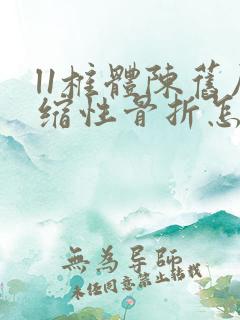 11椎體陳舊
缩性骨折怎
無為导師
未经同意禁止转载